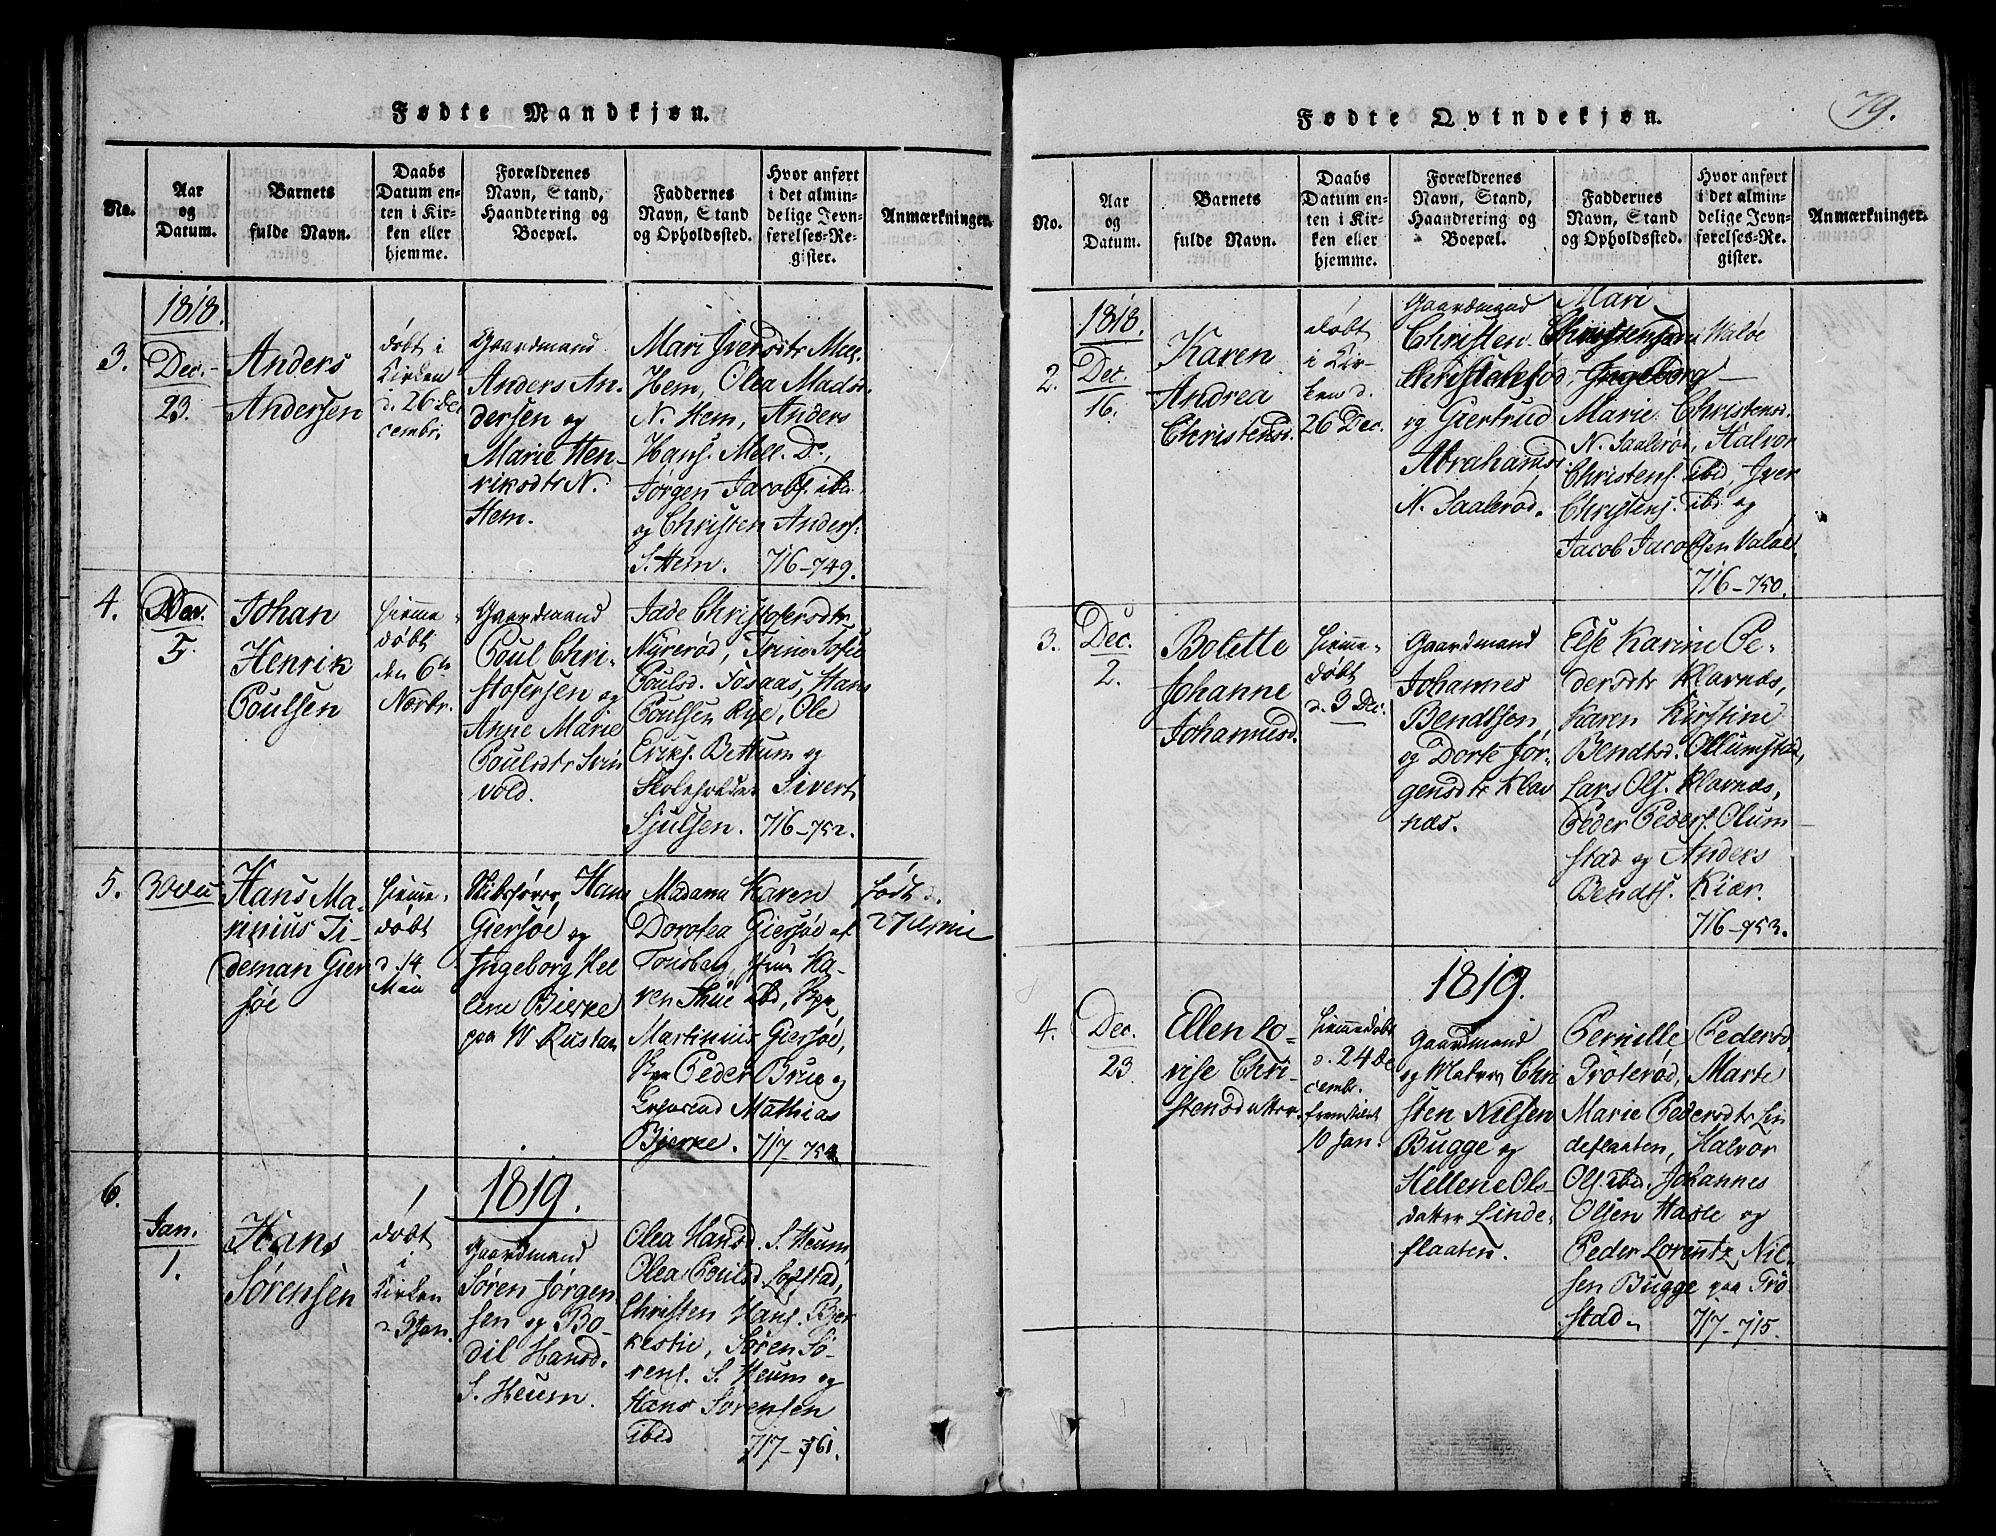 Fødte Mandkjøn.
No.
Aar
og
Datum.
Barnets
fulde Navn.
Daabs
Datum en-
ten i Kir-
ken eller
hjemme.
Forældrenes
Navn, Stand,
Haandtering og
Boepæl.
Faddernes
Navn, Stand
og Opholdssted.
Hvor anført
i det almin-
delige Jevn-
førelses-Re-
gister.
Anmærkninger.
3.
1818.
Dec.
23.
Anders
Andersen
døbt i
Kirken
d. 26 De
cembr.
Gaardmand
Anders An-
dersen og
Marie Hen-
riksdtr N.
Hem.
Mari Iversdtr Mel.
Hem, Olea Madsd.
N. Hem, Anders
Hans. Mell. Do,
Jørgen Jacobs. ibd.
og Christen Anders.
S. Hem. 716-749.
4.
5.
Johan
Henrik
Poulsen
hjemme-
døbt
den 6te
Gaardmand
Poul Chri-
stofersen og
Anne Marie
Poulsdtr Svin
vold.
Christofersdtr
Trine Sofie
Poulsd. Fosaas, Hans
Poulsen Rye, Ole
Eriks. Bettum og
Skoleholder Sivert
Sjulsen. 716-752.
5.
Hans Ma-
rinius Ti-
deman Gier
søe
hjemme-
døbt
d. 14
Mai
Skibsfører Hans
Giersøe og
Ingeborg Hel
lene Bierke
paa
Madame Karen
Dorotea Giersøe af
Tønsberg, Ka-
ren ibd,
Martinius Giersøe,
Peder Brue og
Mathias
Bjerke. 717
født d.
6.
1819.
Jan.
1.
Hans
Sørensen
døbt
i
Kirken
Gaardmand
Søren Jørgen
sen og Bo-
dil Hansd.
S. Heum.
Olea Hansd. S. Heum,
Olea Poulsd Lofstad,
Christen Hans. Bjer
kestie, Søren Sø-
rens. S. Heum og
Hans Sørensen
ibid 717-761.
79.
Fødte Qvindekjøn.
No.
Aar
og
Datum.
Barnets
fulde Navn.
Daabs
Datum en-
ten i Kir-
ken eller
hjemme.
Forældrenes
Navn, Stand,
Haandtering og
Boepæl.
Faddernes
Navn, Stand
og Opholdssted.
Hvor anført
i det almin-
delige Jevn-
førelses-Re-
gister.
Anmærkninger.
2.
1818.
Dec.
16.
Karen
Andrea
Christensd.
døbt
i Kir-
ken d.
26 Dec.
Gaardmand
Christen
og Giertrud
Abrahamsd.
N. Saalerød.
Mari
Valøe
Ingeborg
Marie Christensd.
N. Saalerød, Halvor
Christens. ibd, Iver
Christens. ibd. og
Jacob Jacobsen Valøe.
716-750.
3.
Dec.
2.
Bolette
Johanne
Johannesd.
hjemme-
døbt
d. 3 Dec.
Gaardmand
Johannes
Bendtsen,
og Dorte Jør-
gensdtr Klav
næs.
Else Karine Pe-
dersdtr Klavnæs,
Karen Kirstine
Bendtsd. Ollumstad,
Lars Ols. Klavnæs,
Peder Peders. Olum
stad og Anders
Bendts. Kiær.
716-753.
1819.
4.
Dec.
23
Ellen Lo-
vise Chri-
stensdatter.
hjemmedøbt
d. 24 De
cembr.
fremstillet
10 Jan.
Gaardmand
og Chri
sten Nilsen
Bugge og
Hellene Ols-
datter Linde-
flaaten.
Pernille Pedersd.
Trøterød, Marte
Marie Pedersdtr Lin
deflaaten, Halvor
Ols. ibd. Johannes
Olsen Hasle og
Peder Lorentz Nil-
sen Bugge paa Trø
stad. 717-715.